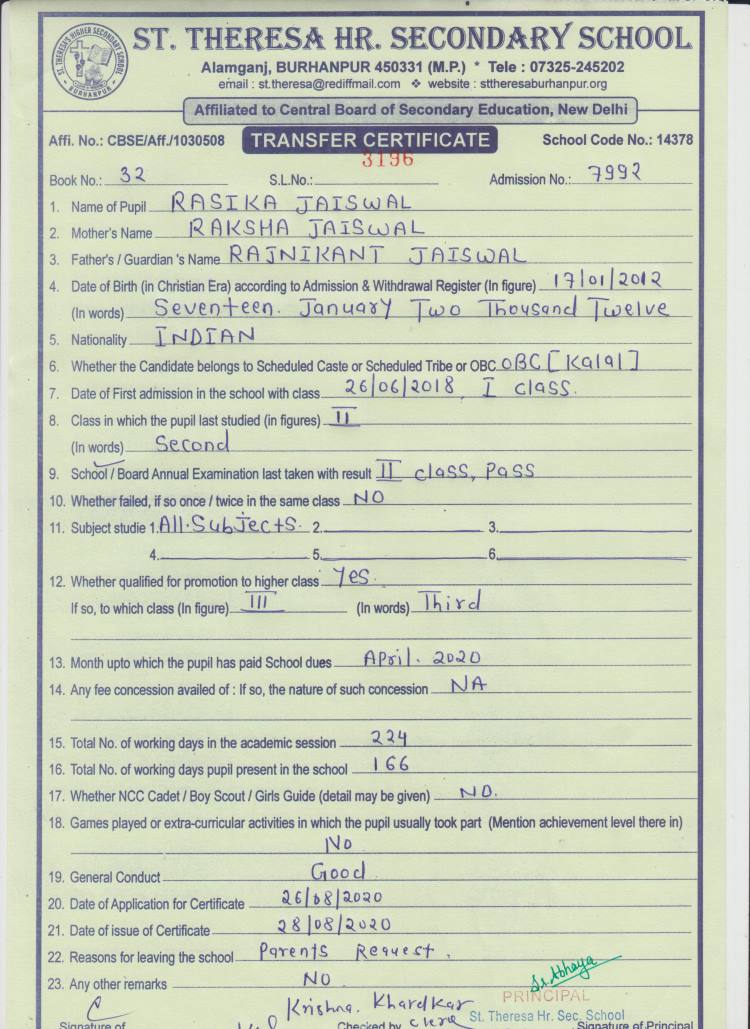 ST. THERESA'S HIGHER SECONDARY SCHOOL
BURHANPUR
ST. THERESA HR. SECONDARY SCHOOL
Alamganj, BURHANPUR 450331 (M.P.) * Tele : 07325-245202
email : st.theresa@rediffmail.com ❖ website : sttheresaburhanpur.org
Affiliated to Central Board of Secondary Education, New Delhi
Affi. No.: CBSE/Aff./1030508 TRANSFER CERTIFICATE School Code No.: 14378
3196
Book No.: 32 S.L.No.: Admission No.: 7992
1. Name of Pupil RASIKA JAISWAL
2. Mother's Name RAKSHA JAISWAL
3. Father's / Guardian 's Name RAJNIKANT JAISWAL
4. Date of Birth (in Christian Era) according to Admission & Withdrawal Register (In figure) 17/01/2012
(In words) Seventeen. January Two Thousand Twelve
5. Nationality INDIAN
6. Whether the Candidate belongs to Scheduled Caste or Scheduled Tribe or OBC OBC [Kalal]
7. Date of First admission in the school with class 26/06/2018, I class.
8. Class in which the pupil last studied (in figures) II
(In words) Second
9. School / Board Annual Examination last taken with result II class, Pass
10. Whether failed, if so once / twice in the same class NO
11. Subject studie 1. All.Subjects. 2. 3.
4. 5. 6.
12. Whether qualified for promotion to higher class Yes.
If so, to which class (In figure) III (In words) Third
13. Month upto which the pupil has paid School dues April. 2020
14. Any fee concession availed of : If so, the nature of such concession NA
15. Total No. of working days in the academic session 224
16. Total No. of working days pupil present in the school 166
17. Whether NCC Cadet / Boy Scout / Girls Guide (detail may be given) NO.
18. Games played or extra-curricular activities in which the pupil usually took part (Mention achievement level there in)
No
19. General Conduct Good
20. Date of Application for Certificate 26/08/2020
21. Date of issue of Certificate 28/08/2020
22. Reasons for leaving the school Parents Request.
23. Any other remarks NO
Sr. Abhaya
PRINCIPAL
Krishna. Kharelkar
St. Theresa Hr. Sec. School
Signature of Checked by Clerk Signature of Principal